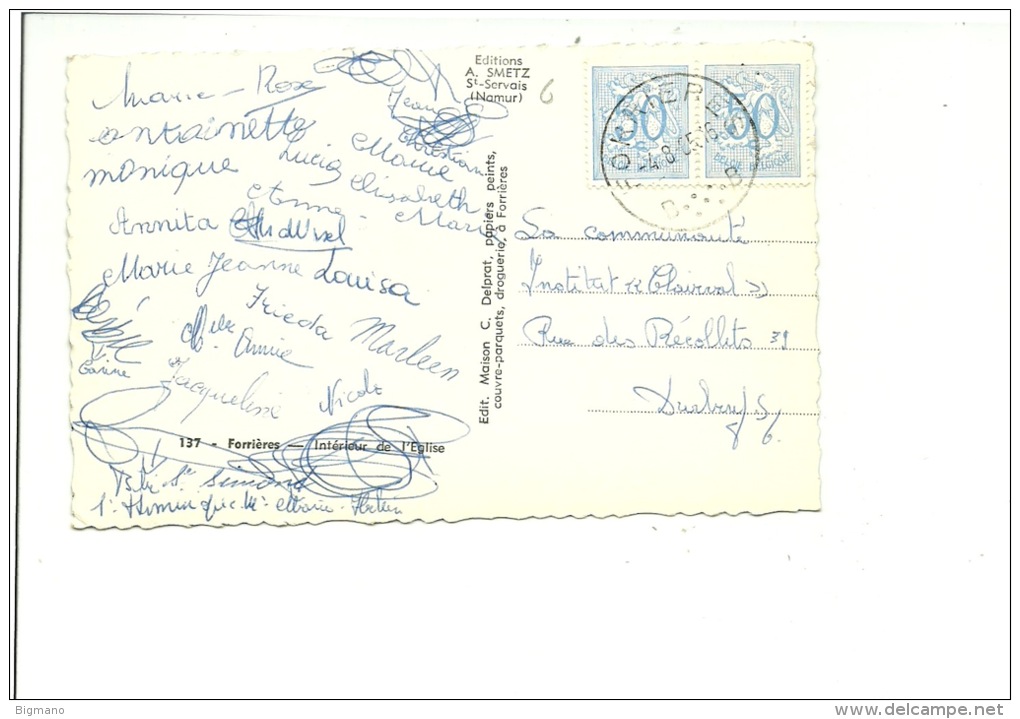 Marie-Rose
antoinette
monique
Lucie
Jean
Christian
Marie
Elisabeth
Anne-Marie
Annita
Marie Jeanne
Louisa
Frieda
Marleen
Annie
Carine
Jacqueline
Nicole
137 - Forrières — Intérieur de l'Eglise
Simone
Editions
A. SMETZ
St-Servais
(Namur)
6
Edit. Maison C. Delprat, papiers peints,
couvre-parquets, droguerie, à Forrières
50
50
BELGIE BELGIQUE
FORRIERES
-4.8.65.16
B B
La communauté
Institut « Clairval »
Rue des Récollets 31
Durbuy
Bigmano